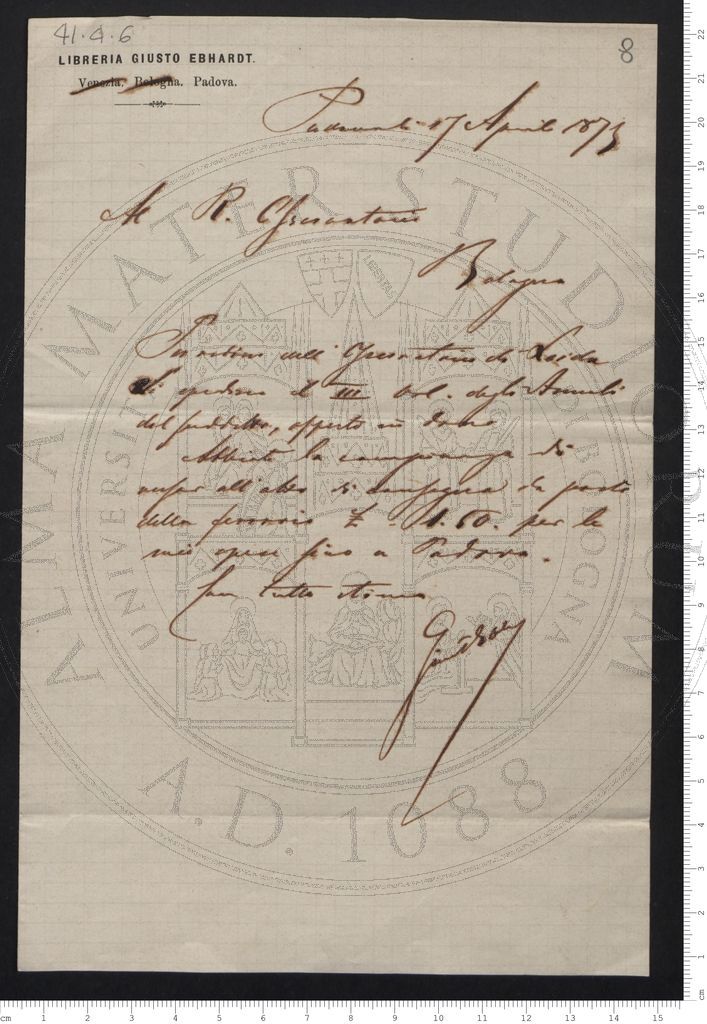 41.4.6
8
LIBRERIA GIUSTO EBHARDT.
Venezia. Bologna. Padova.
Padova li 17 Aprile 1873
Al R. Osservatorio
Bologna
dell' Osservatorio di Leida
Si spedisce il III Vol. degli Annali
del suddetto, offerto in dono
Abbiate la compiacenza di
all'atto di consegna da parte
della ferrovia £ 1.60. per le
mie spese fino a Padova.
Con tutta stima
ALMA MATER STUDIORUM
UNIVERSITÀ DI BOLOGNA
A.D. 1088
LIBERTAS
cm
1 2 3 4 5 6 7 8 9 10 11 12 13 14 15
cm
1 2 3 4 5 6 7 8 9 10 11 12 13 14 15 16 17 18 19 20 21 22